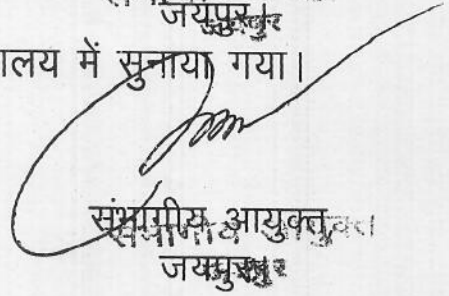 जयपुर।
ालय में सुनाया गया।
संभागीय आयुक्त,
जयपुर।